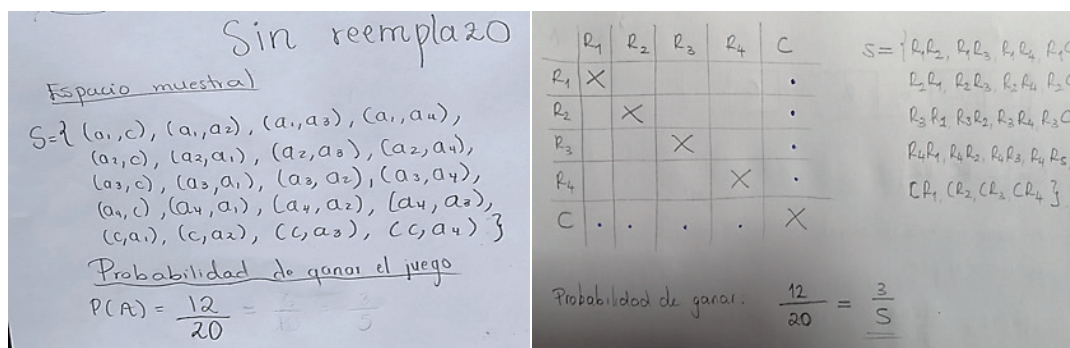 Sin reemplazo
Espacio muestral
S={(a₁,c), (a₁,a₂), (a₁,a₃), (a₁,a₄),
(a₂,c), (a₂,a₁), (a₂,a₃), (a₂,a₄),
(a₃,c), (a₃,a₁), (a₃,a₂), (a₃,a₄),
(a₄,c), (a₄,a₁), (a₄,a₂), (a₄,a₃),
(c,a₁), (c,a₂), (c,a₃), (c,a₄)}
Probabilidad de ganar el juego
P(A) = 12/20 = = 3/5
R₁ R₂ R₃ R₄ C
R₁ X .
R₂ X .
R₃ X .
R₄ X .
C . . . . X
S={R₁R₂, R₁R₃, R₁R₄, R₁C
R₂R₁, R₂R₃, R₂R₄, R₂C
R₃R₁, R₃R₂, R₃R₄, R₃C
R₄R₁, R₄R₂, R₄R₃, R₄R₅,
CR₁, CR₂, CR₃, CR₄}
Probabilidad de ganar. 12/20 = 3/5